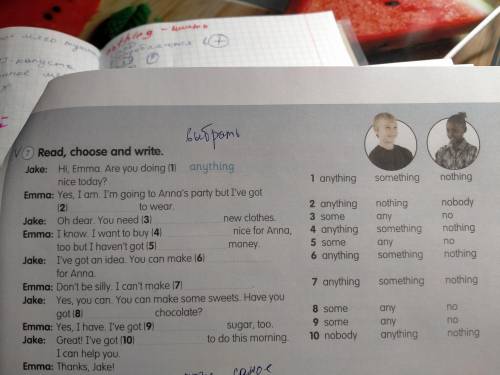 nothing - ничего
выбрать
7 Read, choose and write.
Jake: Hi, Emma. Are you doing (1) anything
nice today?
Emma: Yes, I am. I'm going to Anna's party but I've got
(2) to wear.
Jake: Oh dear. You need (3) new clothes.
Emma: I know. I want to buy (4) nice for Anna,
too but I haven't got (5) money.
Jake: I've got an idea. You can make (6)
for Anna.
Emma: Don't be silly. I can't make (7)
Jake: Yes, you can. You can make some sweets. Have you
got (8) chocolate?
Emma: Yes, I have. I've got (9) sugar, too.
Jake: Great! I've got (10) to do this morning.
I can help you.
Emma: Thanks, Jake!
1 anything something nothing
2 anything nothing nobody
3 some any no
4 anything something nothing
5 some any no
6 anything something nothing
7 anything something nothing
8 some any no
9 some any no
10 nobody anything nothing
самое